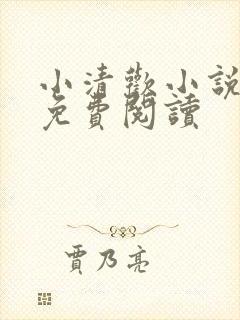 小清歡小說
免費閱讀
賈乃亮